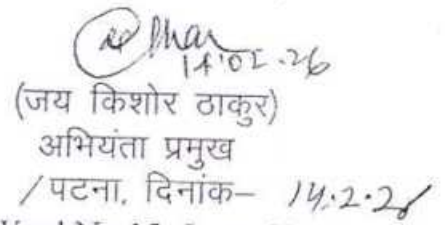 14.02.26
(जय किशोर ठाकुर)
अभियंता प्रमुख
/पटना, दिनांक– 14.2.26